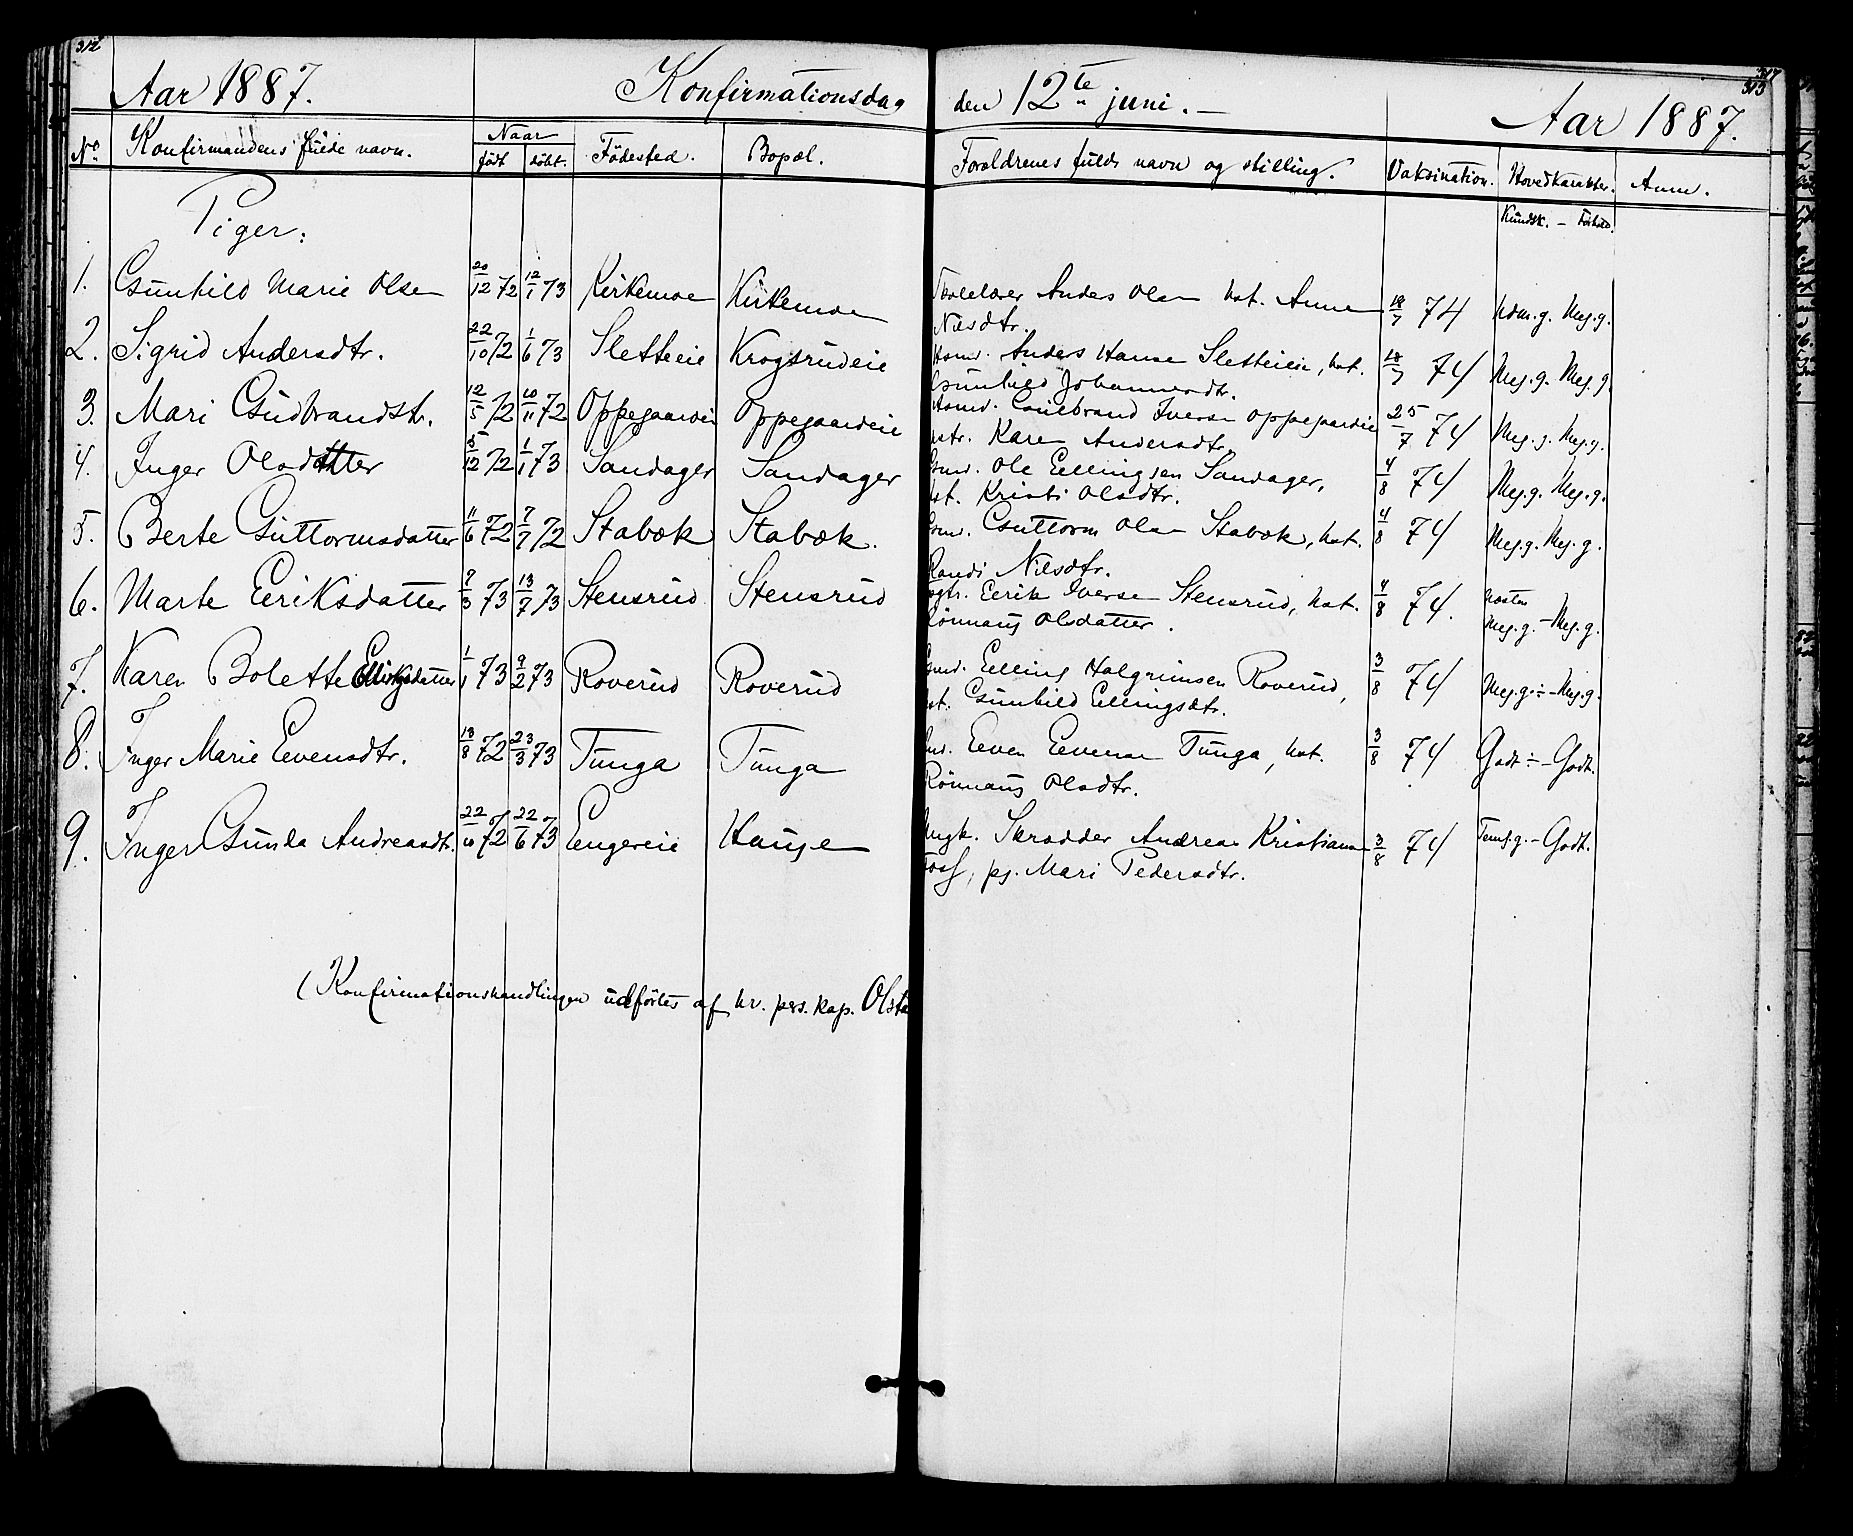 312
313
Aar 1887. Konfirmationsdag den 12te juni. — Aar 1887.
No. Konfirmandens fulde navn. Naar født døbt. Fødested. Bopæl. Forældrenes fulde navn og stilling. Vaksination. Hovedkarakter. Anm.
Kundsk. —
Piger:
1. Gunhild Marie Olsen 20/12 72 12/1 73 Kirkemoe Kirkemoen Anders Olsen hst. Anne 18/7 74 Ndm.g. Meg.g.
Nilsdtr.
2. Sigrid Andersdtr. 22/10 72 1/6 73 Sletteeie Krogsrudeie Anders Hansen Sletteeie, hst. 18/7 74 Meg.g. Meg.g.
Gunhild Johannesdtr.
3. Mari Gudbrandsdtr. 12/5 72 10/11 72 Oppegaardei Oppegaardeie Gudbrand Iversen Oppegaardeie 25/7 74 Meg.g. Meg.g.
Karen Andersdtr.
4. Inger Olsdatter 5/12 72 1/1 73 Sandager Sandager Ole Eellingsen Sandager, 4/8 74 Meg.g. Meg.g.
hst. Kristi Olsdtr.
5. Berte Guttormsdatter 11/6 72 7/7 72 Stabæk Stabæk. Guttorm Olsen Stabæk, hst. 4/8 74 Meg.g. Meg.g.
Randi Nilsdtr.
6. Marte Eeriksdatter 9/3 73 13/7 73 Stensrud Stensrud Eerik Iversen Stensrud, hst. 4/8 74. næsten
Rønnaug Olsdatter. Meg.g. — Meg.g.
7. Karen Bolette Ellingsdatter 1/1 73 9/2 73 Roverud Roverud Eelling Halgrimsen Roverud, 3/8 74 Meg.g. ÷ — Meg.g.
hst. Gunhild Eellingsdtr.
8. Inger Marie Eevensdtr. 18/8 72 23/3 73 Tunga Tunga Eeven Eevensen Tunga, hst. 3/8 74 Godt ÷ — Godt.
Rønnaug Olsdtr.
9. Inger Gunda Andreasdtr. 22/10 72 22/6 73 Eengereie Hauge Ungk. Skrædder Andreas Kristiansen 3/8 74 Teml.g. — Godt.
Foss, pg. Mari Pedersdtr.
(Konfirmationshandlingen udførtes af hr. pers. kap. Olsta